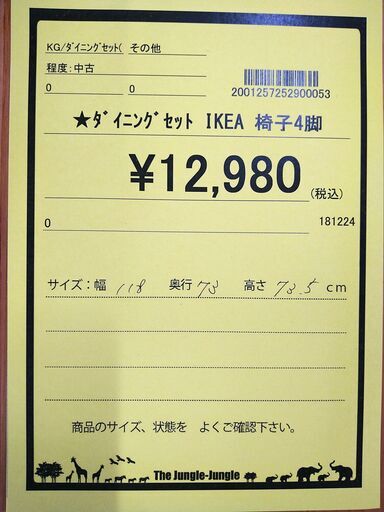 KG/ﾀﾞｲﾆﾝｸﾞｾｯﾄ( その他
程度:中古
0 0
2001257252900053
★ﾀﾞｲﾆﾝｸﾞｾｯﾄ IKEA 椅子4脚
¥12,980 (税込)
0 181224
サイズ:幅 118 奥行 73 高さ 73.5 cm
商品のサイズ、状態を よくご確認下さい。
The Jungle-Jungle